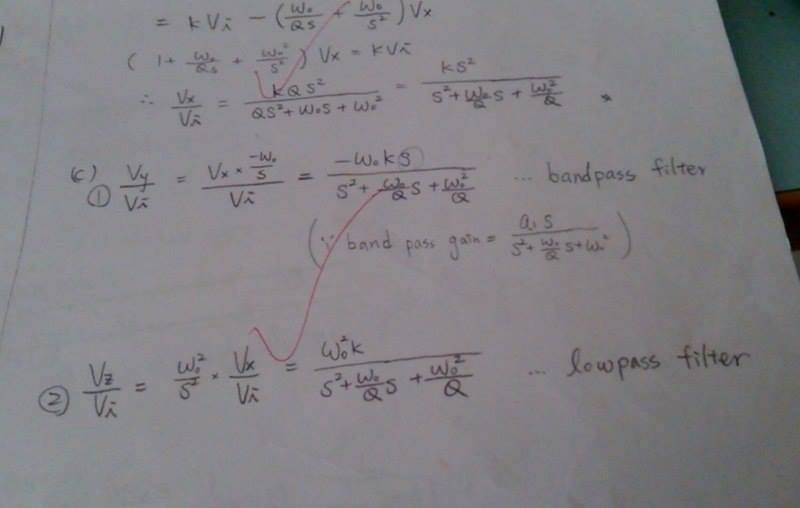 = kVi − (ω₀/QS + ω₀/S²)Vx
(1 + ω₀/QS + ω₀²/S²) Vx = kVi
∴ Vx/Vi = kQS²/(QS²+ω₀S+ω₀²) = kS²/(S²+(ω₀/Q)S+ω₀²/Q)
(c)
① Vy/Vi = (Vx × −ω₀/S)/Vi = −ω₀kS/(S²+(ω₀/Q)S+ω₀²/Q) ... bandpass filter
(∵ band pass gain = a₁S/(S²+(ω₀/Q)S+ω₀²))
② Vz/Vi = ω₀²/S² × Vx/Vi = ω₀²k/(S²+(ω₀/Q)S+ω₀²/Q) ... lowpass filter